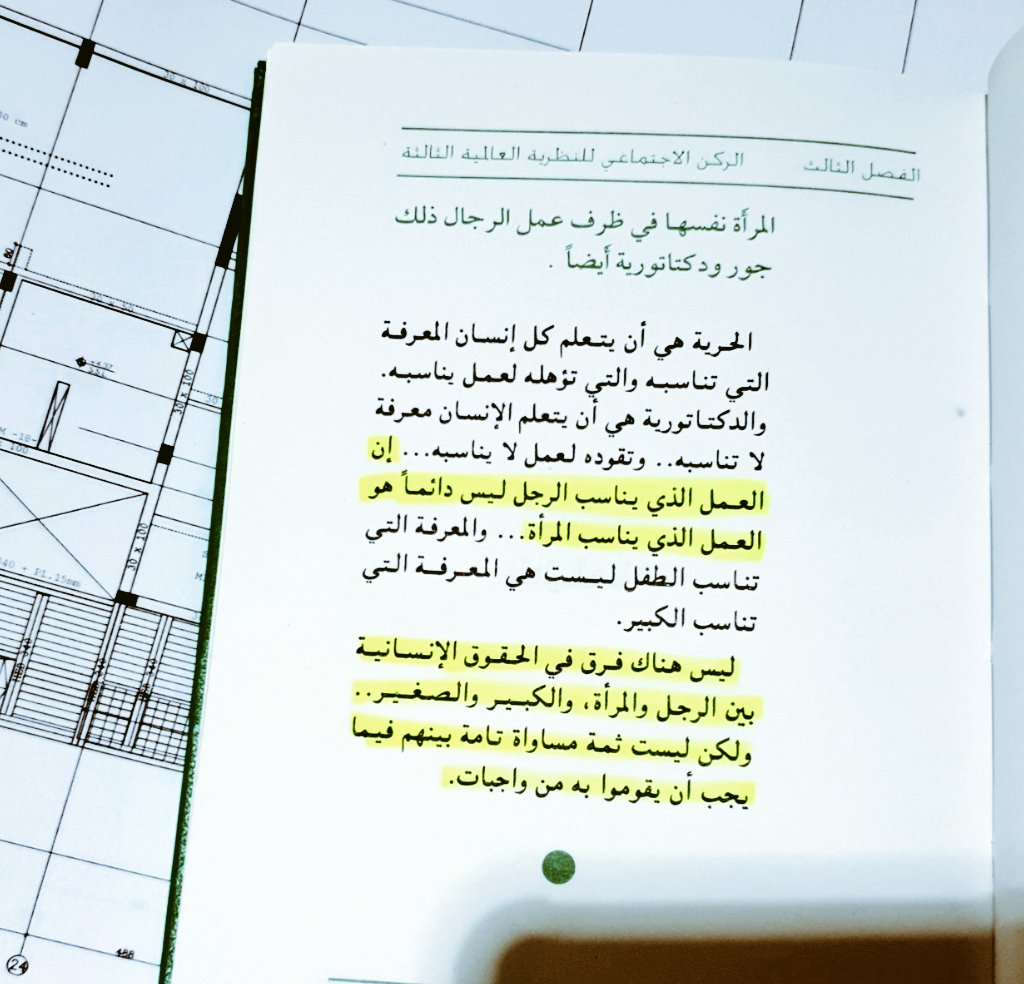 الفصل الثالث الركن الاجتماعي للنظرية العالمية الثالثة
المرأة نفسها في ظرف عمل الرجال ذلك
جور ودكتاتورية أيضاً .
الحرية هي أن يتعلم كل إنسان المعرفة
التي تناسبه والتي تؤهله لعمل يناسبه.
والدكتاتورية هي أن يتعلم الإنسان معرفة
لا تناسبه.. وتقوده لعمل لا يناسبه... إن
العمل الذي يناسب الرجل ليس دائماً هو
العمل الذي يناسب المرأة... والمعرفة التي
تناسب الطفل ليست هي المعرفة التي
تناسب الكبير.
ليس هناك فرق في الحقوق الإنسانية
بين الرجل والمرأة، والكبير والصغير..
ولكن ليست ثمة مساواة تامة بينهم فيما
يجب أن يقوموا به من واجبات.
30 x 100
30 x 100
30 x 100
PL.15mm
24